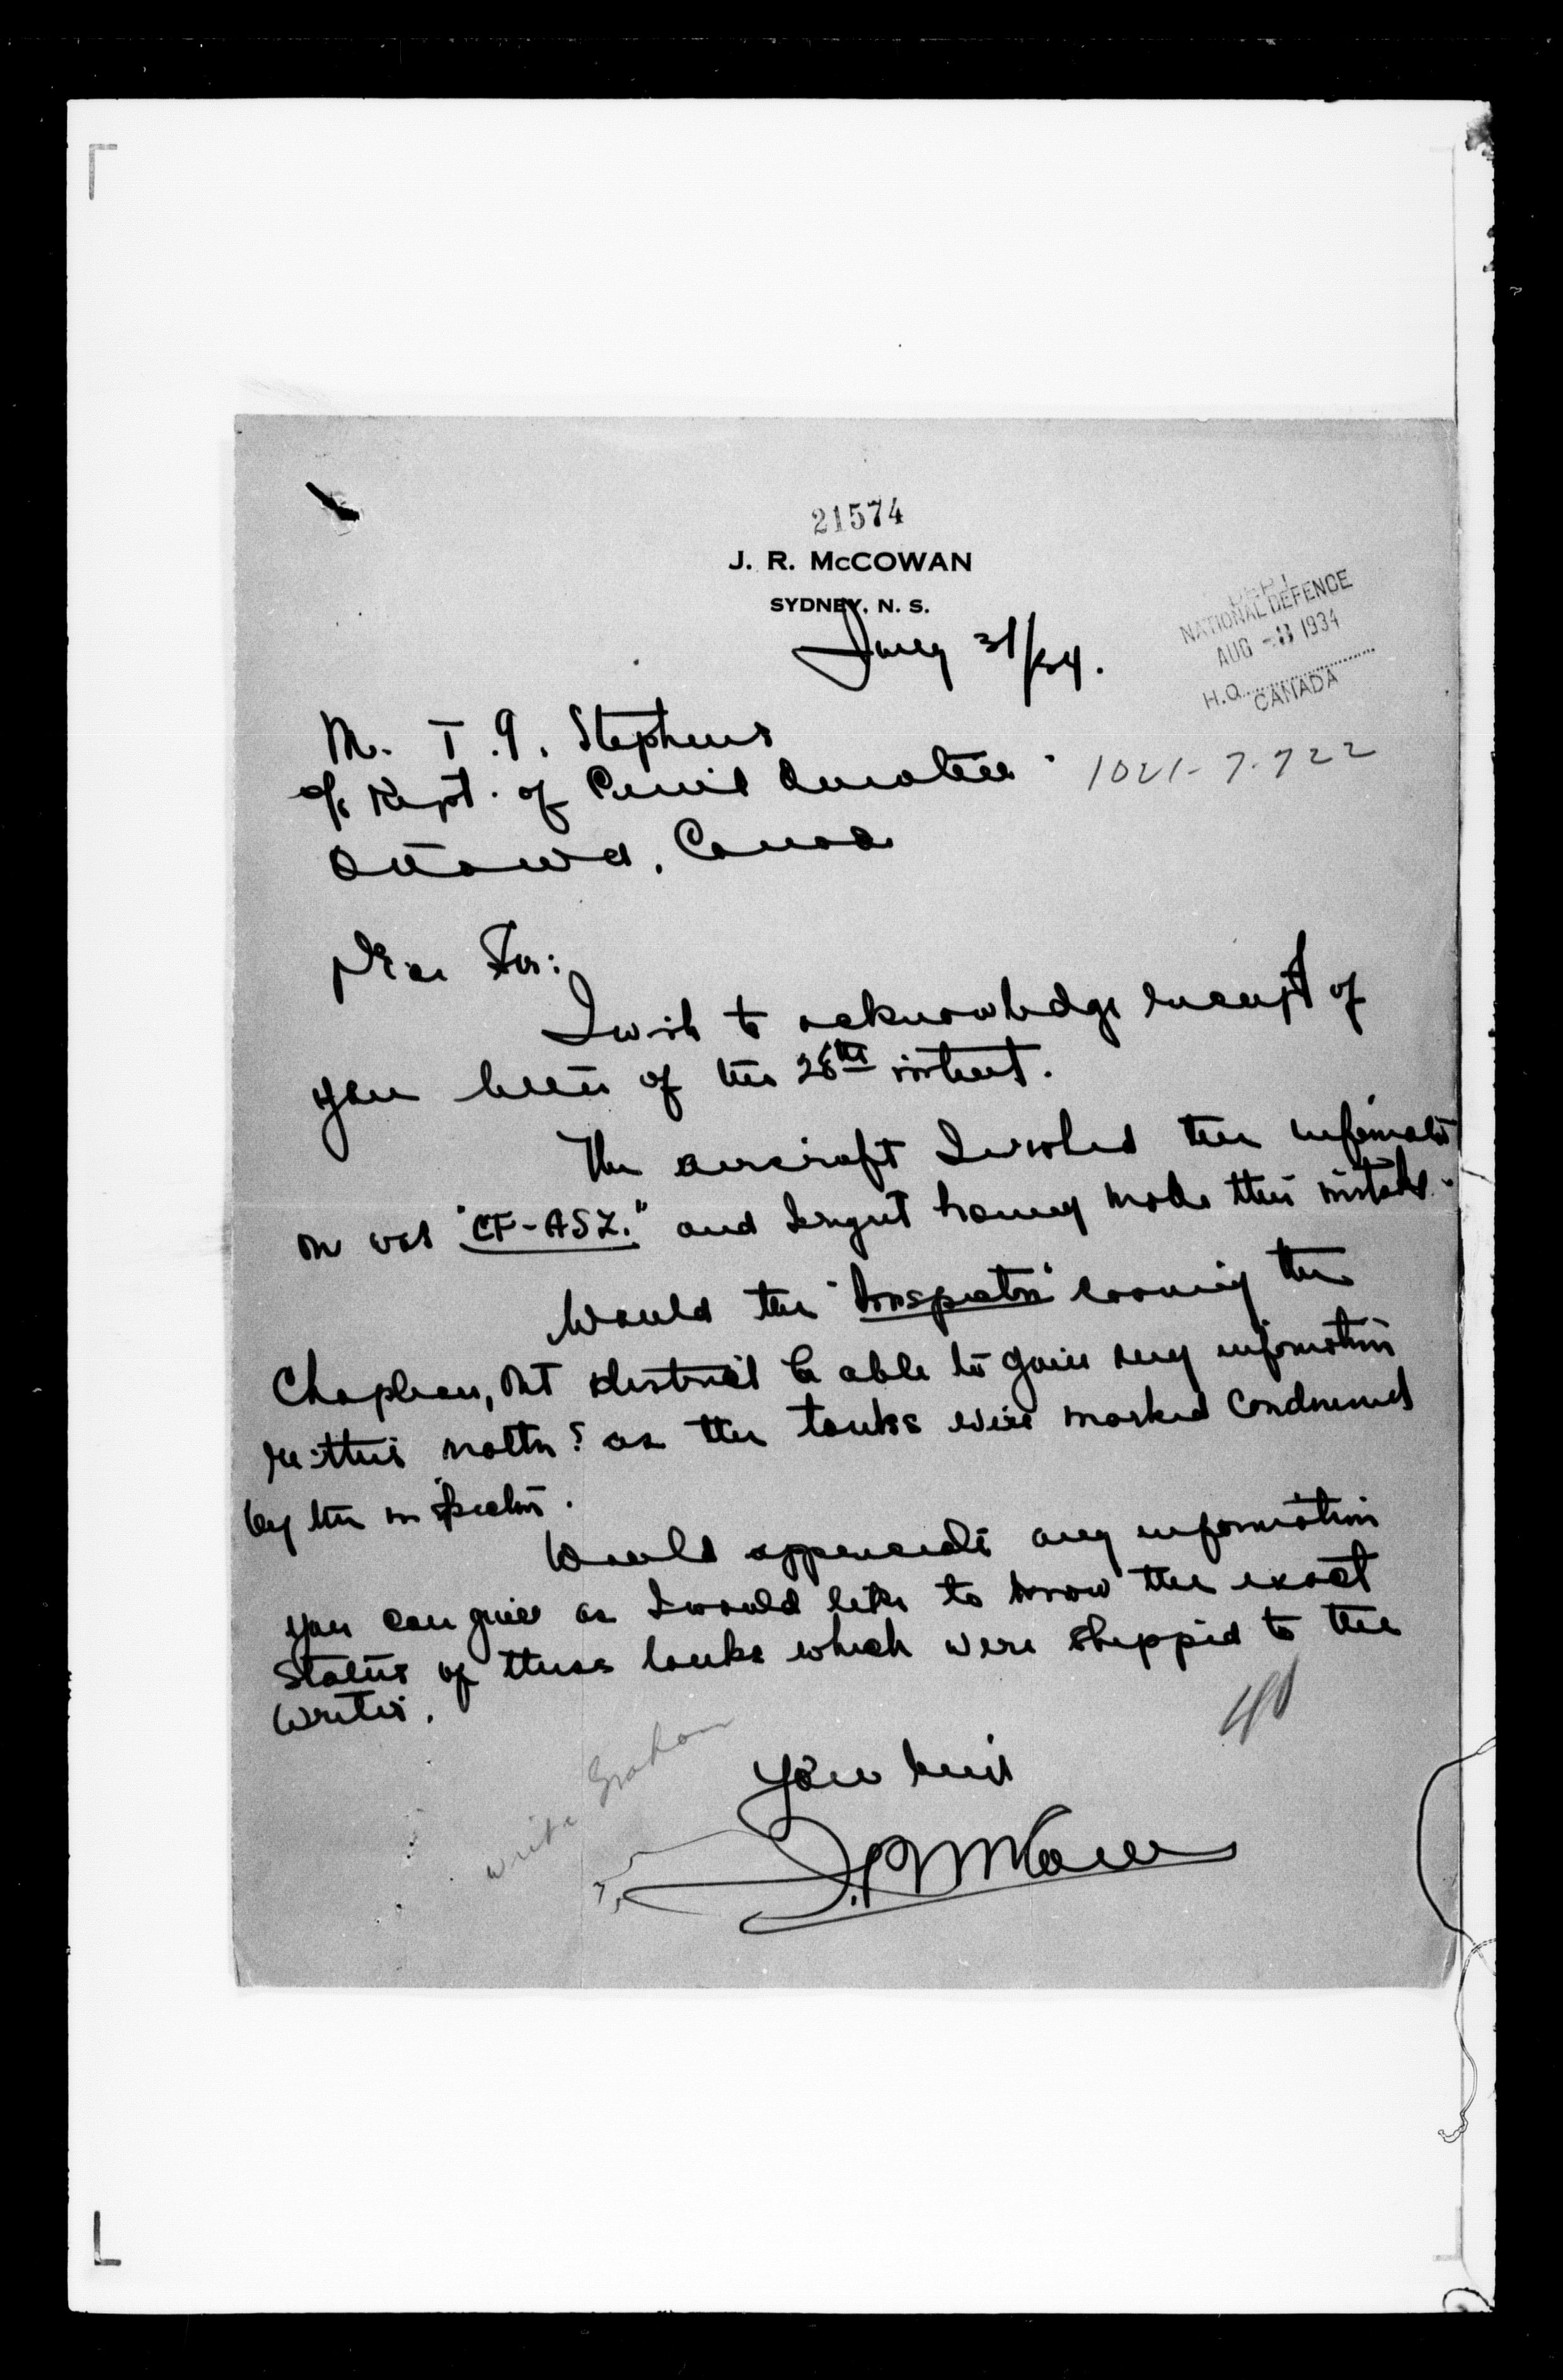 21574
J. R. McCOWAN
SYDNEY, N. S.
DEPT
NATIONAL DEFENCE
AUG -3 1934
H.Q.
CANADA
July 31/34.
Mr. T. 9. Stephens
c/o Dept. of Civil Aviation
1021-7-722
Ottawa, Canada
Dear Sir:
I wish to acknowledge receipt of
your letter of the 28th instant.
The aircraft I wished the informati
on was "CF-ASZ." and regret having made this mistake.
Would the "Inspector" covering the
Chapleau, Ont district be able to gain any information
re: this matter? as the tanks were marked condemned
by the inspector.
Would appreciate any information
you can give as I would like to know the exact
status of these tanks which were shipped to the
writer.
Yours truly
J.R. McCowan
write Graham